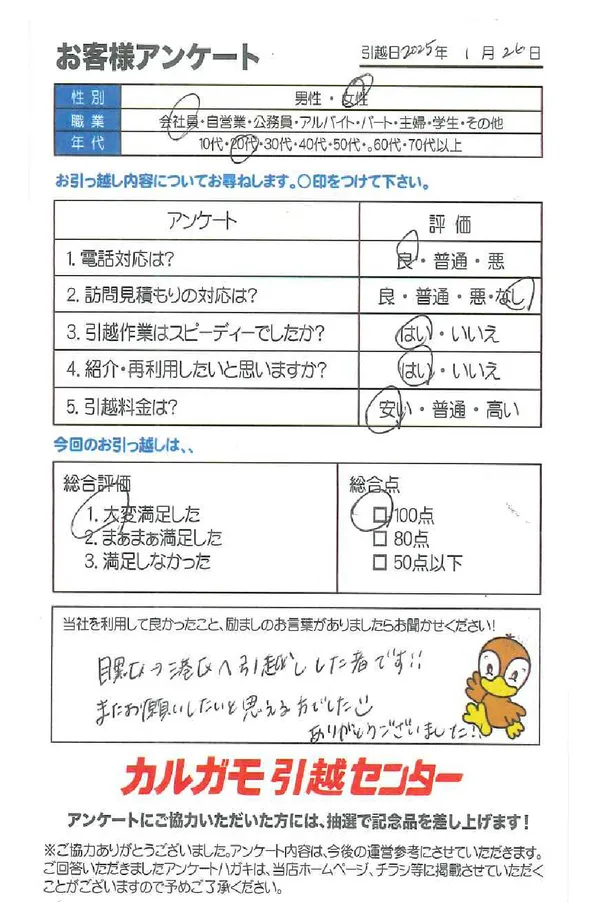 お客様アンケート
引越日2025年 1月26日
性別 男性・女性
職業 会社員・自営業・公務員・アルバイト・パート・主婦・学生・その他
年代 10代・20代・30代・40代・50代・。60代・70代以上
お引っ越し内容についてお尋ねします。〇印をつけて下さい。
アンケート 評価
1. 電話対応は? 良・普通・悪
2. 訪問見積もりの対応は? 良・普通・悪・なし
3. 引越作業はスピーディーでしたか? はい・いいえ
4. 紹介・再利用したいと思いますか? はい・いいえ
5. 引越料金は? 安い・普通・高い
今回のお引っ越しは、、
総合評価 総合点
1. 大変満足した □100点
2. まぁまぁ満足した □80点
3. 満足しなかった □50点以下
当社を利用して良かったこと、励ましのお言葉がありましたらお聞かせください!
目黒区→港区へ引越しした者です!!
またお願いしたいと思える方でした
ありがとうございました!!
カルガモ引越センター
アンケートにご協力いただいた方には、抽選で記念品を差し上げます!
※ご協力ありがとうございました。アンケート内容は、今後の運営参考にさせていただきます。
ご回答いただきましたアンケートハガキは、当店ホームページ、チラシ等に掲載させていただく
ことがございますので予めご了承ください。